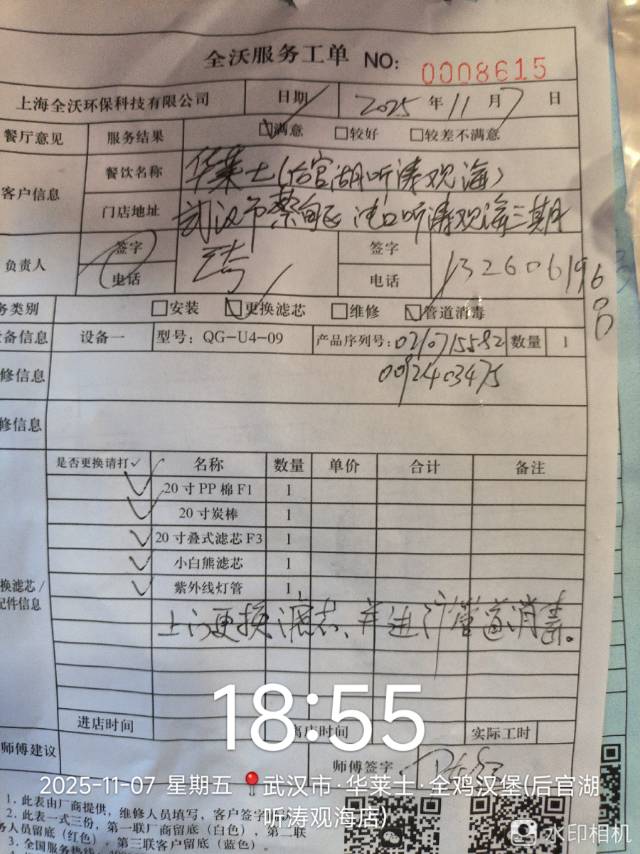 全沃服务工单 NO: 0008615
上海全沃环保科技有限公司 日期 2025 年 11 月 7 日
餐厅意见 服务结果 ☑满意 □较好 □较差不满意
客户信息 餐饮名称 华莱士(后官湖听涛观海)
门店地址 武汉市蔡甸区 沌口听涛观海三期
负责人 签字 签字
电话 电话 13260619600
务类别 □安装 ☑更换滤芯 □维修 ☑管道消毒
设备信息 设备一 型号: QG-U4-09 产品序列号: 0210715582 数量 1
0092403475
修信息
修信息
是否更换请打✓ 名称 数量 单价 合计 备注
✓ 20寸PP棉F1 1
✓ 20寸炭棒 1
✓ 20寸叠式滤芯F3 1
✓ 小白熊滤芯 1
✓ 紫外线灯管 1
换滤芯/
配件信息
上门更换滤芯、并进行管道消毒。
进店时间 离店时间 实际工时
师傅建议 师傅签字:
18:55
2025-11-07 星期五 武汉市·华莱士·全鸡汉堡(后官湖
听涛观海店)
1. 此表由厂商提供，维修人员填写，客户签字
2. 此表一式三份，第一联厂商留底（白色），第二联
务人员留底（红色），第三联客户留底（蓝色）。
3. 全国服务热线
水印相机